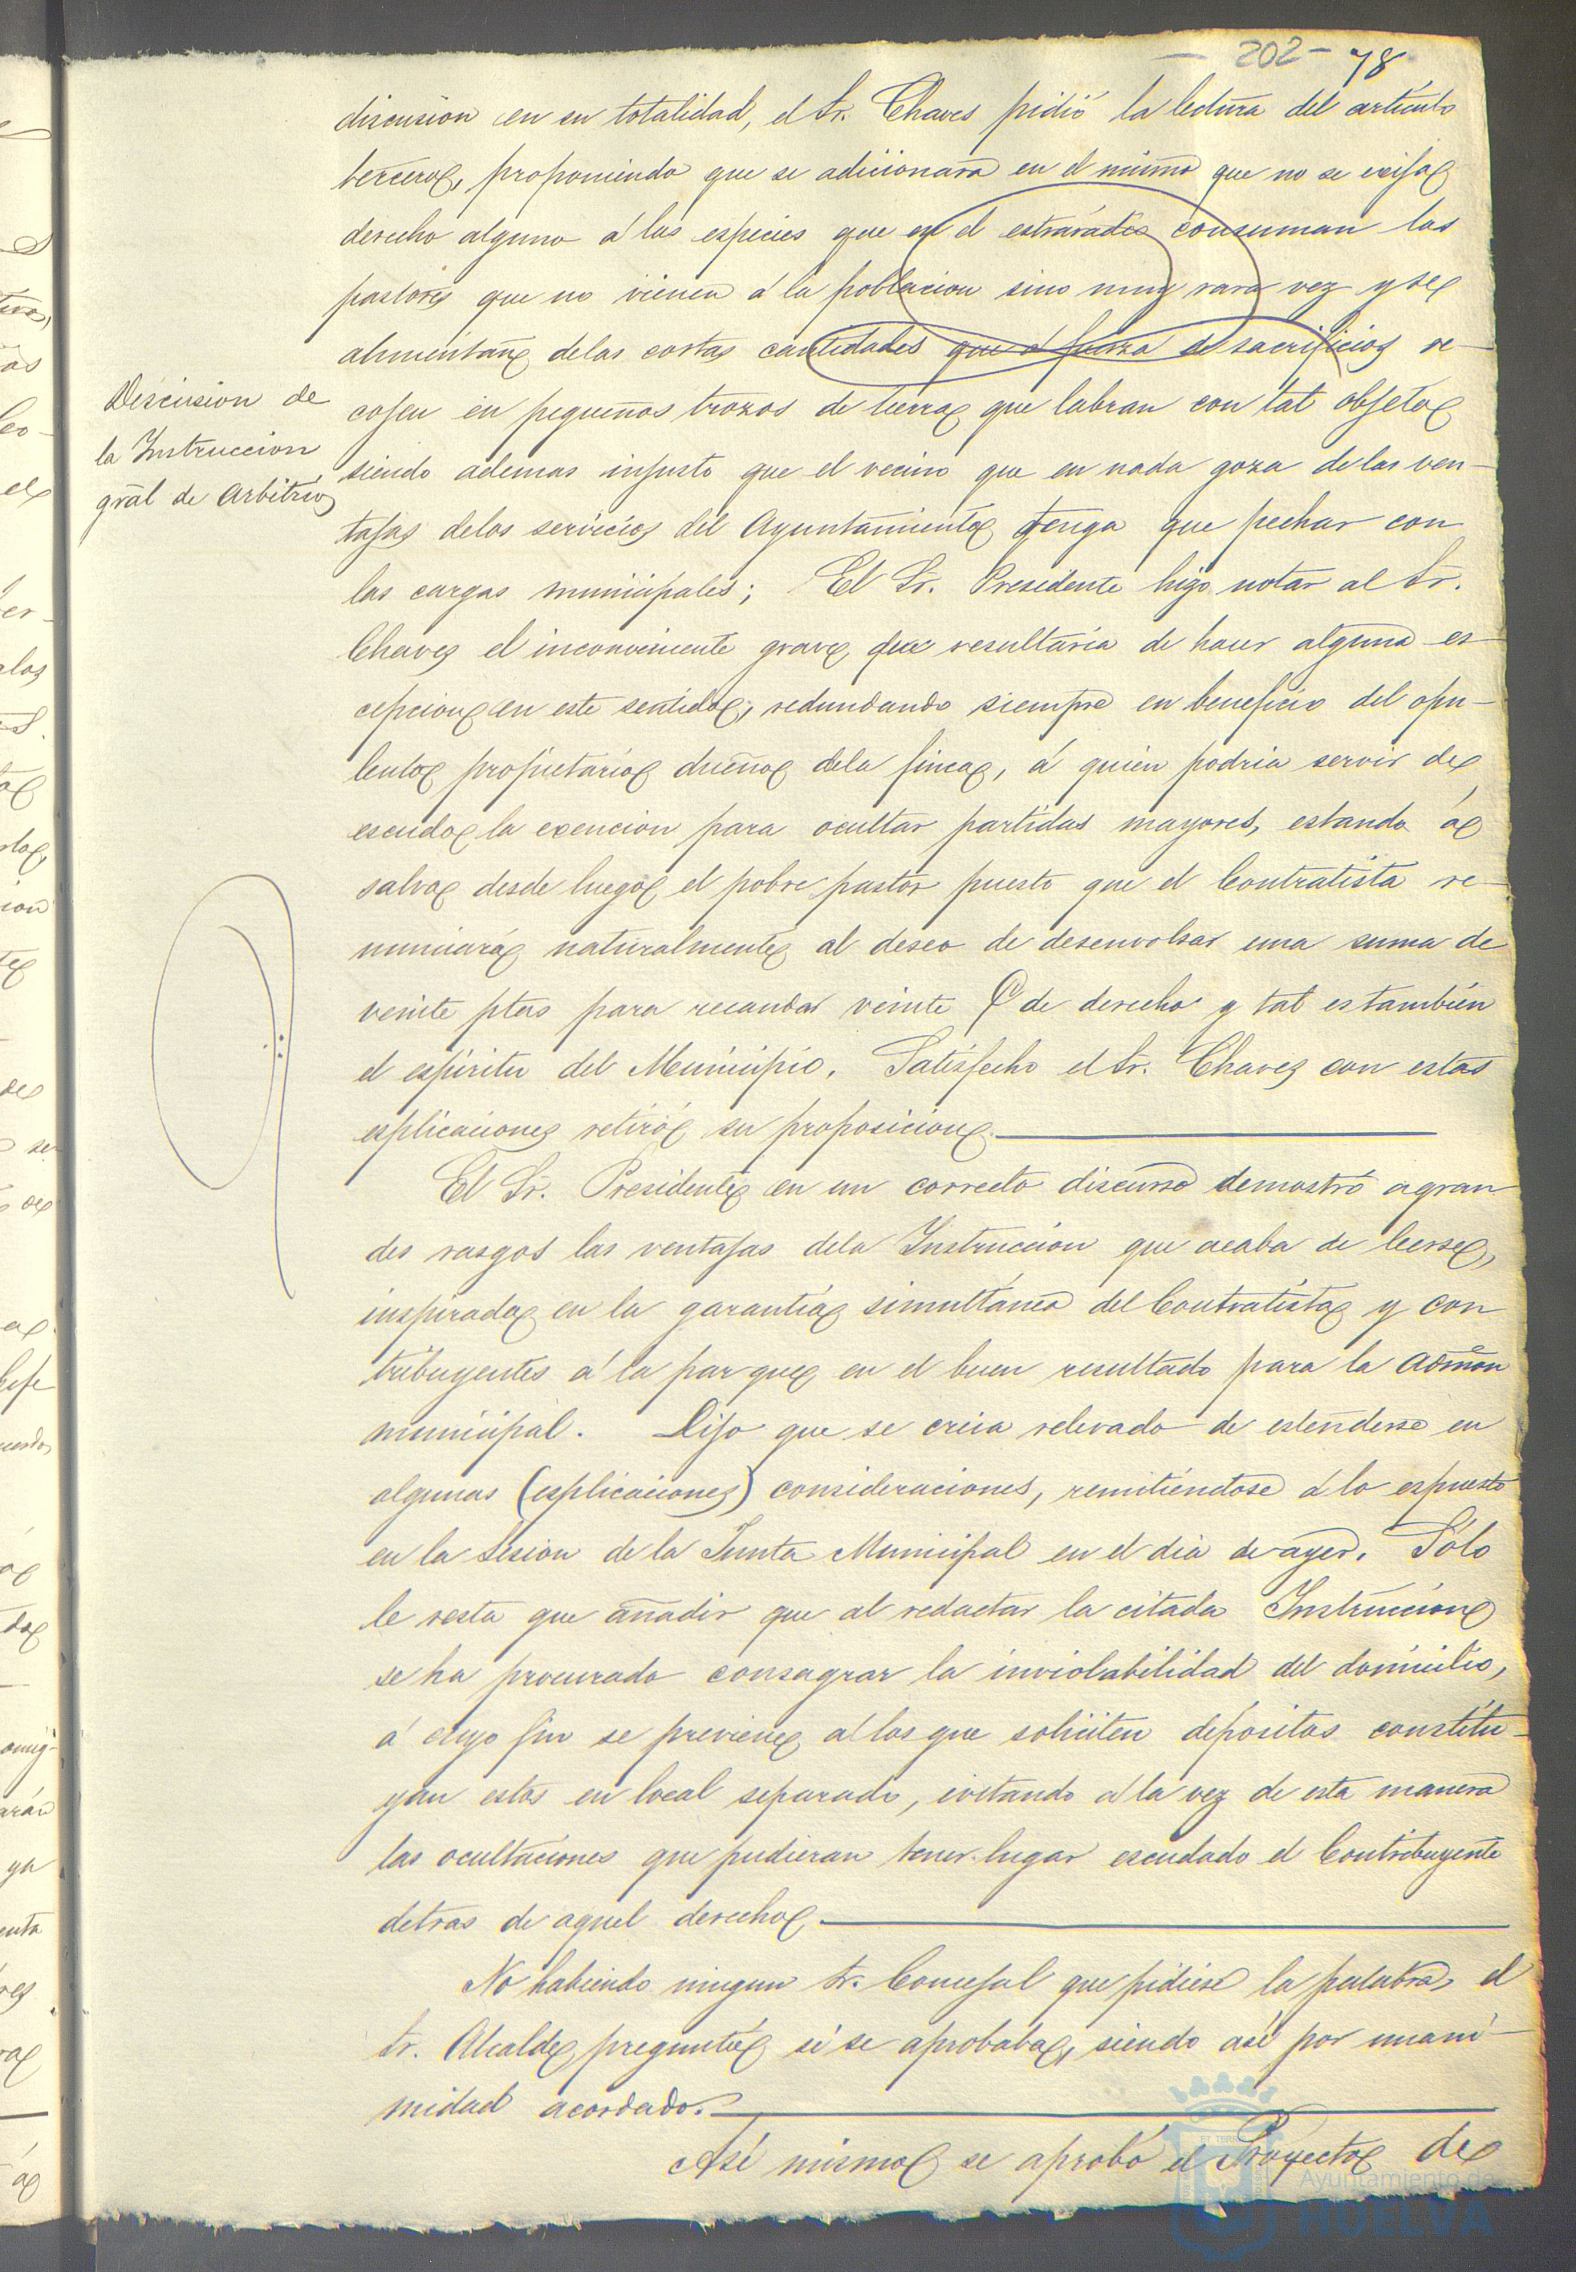 - 202 - 78
discusion en su totalidad, el Sr. Chaves pidió la lectura del artículo
tercero, proponiendo que se adicionara en el mismo que no se exija
derecho alguno á las especies que en el estrarádio consuman los
pastores que no vienen á la poblacion sino muy rara vez y se
alimentan delas cortas cantidades que á fuerza de sacrificios re-
cojen en pequeños trozos de tierra que labran con tal objeto
siendo ademas injusto que el vecino que en nada goza de las ven-
tajas delos servicios del Ayuntamiento tenga que pechar con
las cargas municipales; El Sr. Presidente hizo notar al Sr.
Chaves el inconveniente grave que resultaria de hacer alguna es-
cepcion en este sentido, redundando siempre en beneficio del opu-
lento propietario dueño dela finca, á quien podria servir de
escudo la exencion para ocultar partidas mayores, estando á
salvo desde luego el pobre pastor puesto que el Contratista re-
nunciará naturalmente al deseo de desenvolsar una suma de
veinte ptas para recaudar veinte de derecho y tal es tambien
el espíritu del Municipio. Satisfecho el Sr. Chaves con estas
esplicaciones retiró su proposicion.
Discusion de
la Instruccion
gral de Arbitrios
El Sr. Presidente en un correcto discurso demostró a gran
des rasgos las ventajas dela Instruccion que acaba de leerse,
inspirada en la garantia simultánea del Contratista y con
tribuyentes á la par que en el buen resultado para la Admon
municipal. Dijo que se creia relevado de estenderse en
algunas (esplicaciones) consideraciones, remitiéndose á lo espuesto
en la Sesion de la Junta Municipal en el dia de ayer. Sólo
le resta que añadir que al redactar la citada Instruccion
se ha procurado consagrar la inviolabilidad del domicilio,
á cuyo fin se previene á los que soliciten depositos constitu-
yan estos en local separado, evitando á la vez de esta manera
las ocultaciones que pudieran tener lugar escudado el Contribuyente
detras de aquel derecho.
No habiendo ningun Sr. Concejal que pidiese la palabra, el
Sr. Alcalde preguntó si se aprobaba, siendo así por unani-
midad acordado.
Así mismo se aprobó el Proyecto de
Ayuntamiento de
HUELVA